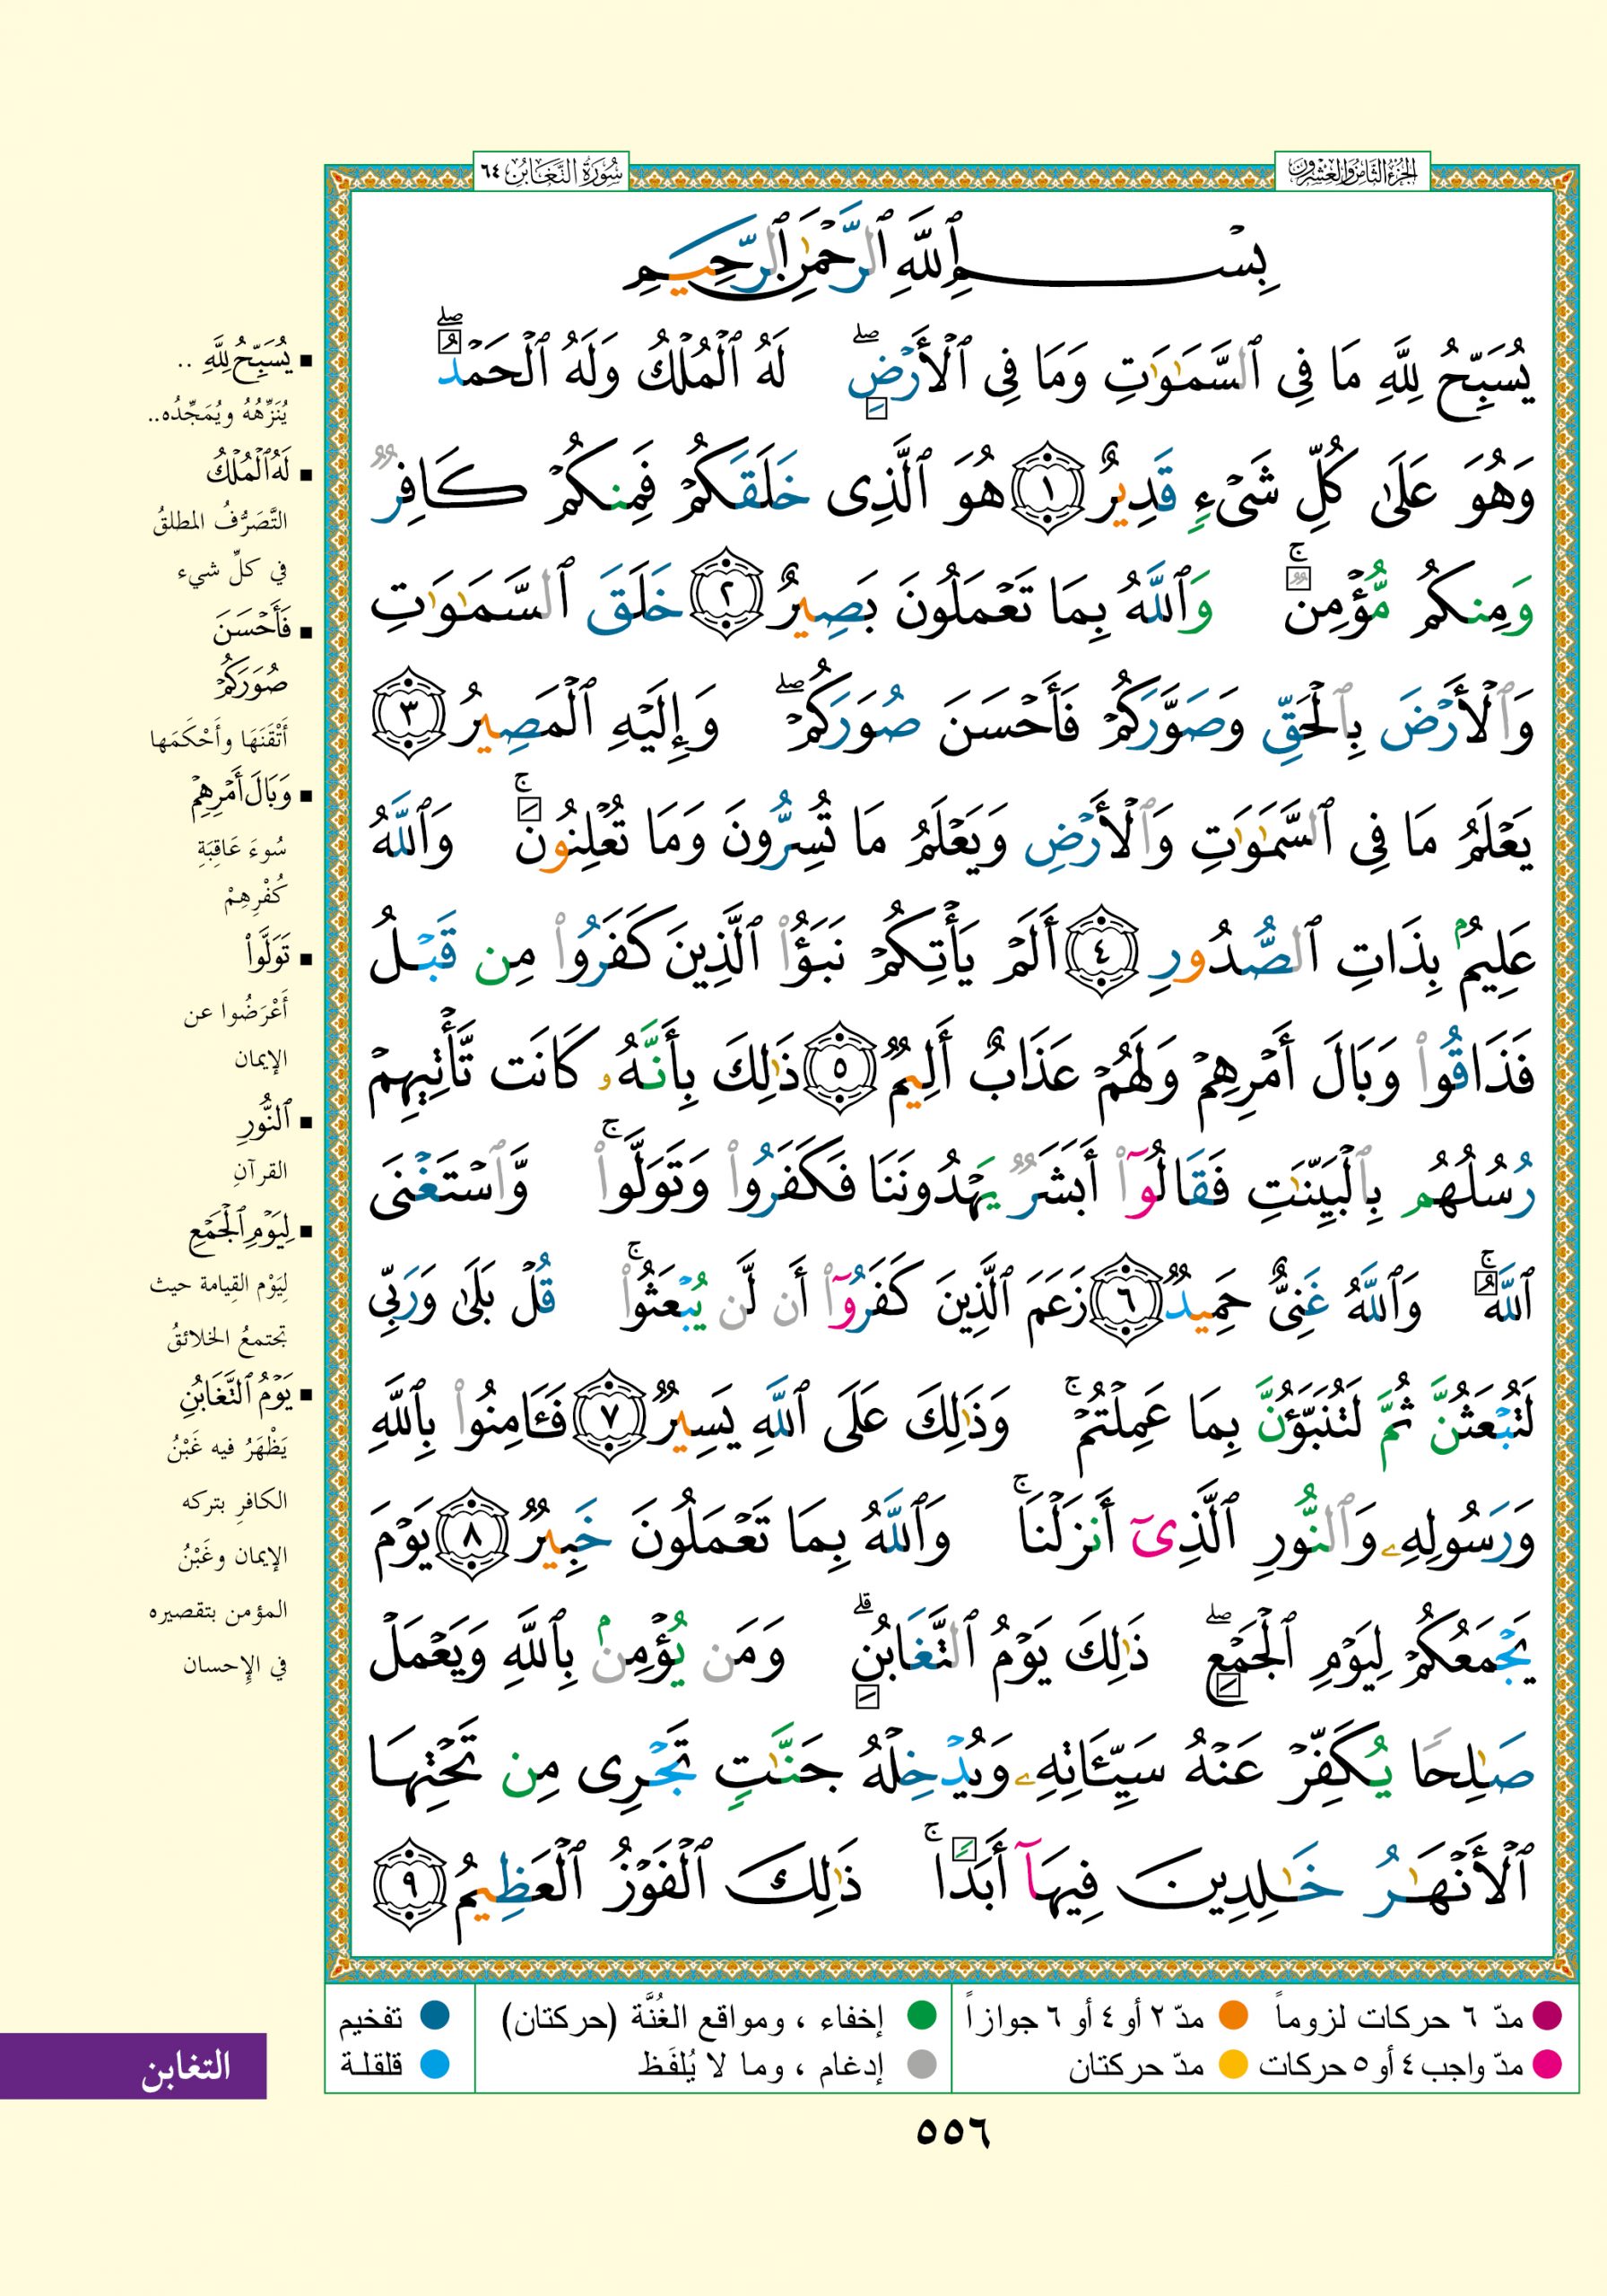 الجزء الثامن والعشرون
سُورَةُ التَّغَابُنِ ٦٤
بِسْمِ ٱللَّهِ ٱلرَّحْمَٰنِ ٱلرَّحِيمِ
يُسَبِّحُ لِلَّهِ مَا فِى ٱلسَّمَٰوَٰتِ وَمَا فِى ٱلْأَرْضِ ۖ لَهُ ٱلْمُلْكُ وَلَهُ ٱلْحَمْدُ ۖ
وَهُوَ عَلَىٰ كُلِّ شَىْءٍ قَدِيرٌ ١ هُوَ ٱلَّذِى خَلَقَكُمْ فَمِنكُمْ كَافِرٌ
وَمِنكُم مُّؤْمِنٌ ۚ وَٱللَّهُ بِمَا تَعْمَلُونَ بَصِيرٌ ٢ خَلَقَ ٱلسَّمَٰوَٰتِ
وَٱلْأَرْضَ بِٱلْحَقِّ وَصَوَّرَكُمْ فَأَحْسَنَ صُوَرَكُمْ ۖ وَإِلَيْهِ ٱلْمَصِيرُ ٣
يَعْلَمُ مَا فِى ٱلسَّمَٰوَٰتِ وَٱلْأَرْضِ وَيَعْلَمُ مَا تُسِرُّونَ وَمَا تُعْلِنُونَ ۚ وَٱللَّهُ
عَلِيمٌۢ بِذَاتِ ٱلصُّدُورِ ٤ أَلَمْ يَأْتِكُمْ نَبَؤُا۟ ٱلَّذِينَ كَفَرُوا۟ مِن قَبْلُ
فَذَاقُوا۟ وَبَالَ أَمْرِهِمْ وَلَهُمْ عَذَابٌ أَلِيمٌ ٥ ذَٰلِكَ بِأَنَّهُۥ كَانَت تَّأْتِيهِمْ
رُسُلُهُم بِٱلْبَيِّنَٰتِ فَقَالُوٓا۟ أَبَشَرٌ يَهْدُونَنَا فَكَفَرُوا۟ وَتَوَلَّوا۟ ۚ وَّٱسْتَغْنَى
ٱللَّهُ ۚ وَٱللَّهُ غَنِىٌّ حَمِيدٌ ٦ زَعَمَ ٱلَّذِينَ كَفَرُوٓا۟ أَن لَّن يُبْعَثُوا۟ ۚ قُلْ بَلَىٰ وَرَبِّى
لَتُبْعَثُنَّ ثُمَّ لَتُنَبَّؤُنَّ بِمَا عَمِلْتُمْ ۚ وَذَٰلِكَ عَلَى ٱللَّهِ يَسِيرٌ ٧ فَـَٔامِنُوا۟ بِٱللَّهِ
وَرَسُولِهِۦ وَٱلنُّورِ ٱلَّذِىٓ أَنزَلْنَا ۚ وَٱللَّهُ بِمَا تَعْمَلُونَ خَبِيرٌ ٨ يَوْمَ
يَجْمَعُكُمْ لِيَوْمِ ٱلْجَمْعِ ۖ ذَٰلِكَ يَوْمُ ٱلتَّغَابُنِ ۗ وَمَن يُؤْمِنۢ بِٱللَّهِ وَيَعْمَلْ
صَٰلِحًا يُكَفِّرْ عَنْهُ سَيِّـَٔاتِهِۦ وَيُدْخِلْهُ جَنَّٰتٍ تَجْرِى مِن تَحْتِهَا
ٱلْأَنْهَٰرُ خَٰلِدِينَ فِيهَآ أَبَدًا ۚ ذَٰلِكَ ٱلْفَوْزُ ٱلْعَظِيمُ ٩
يُسَبِّحُ لِلَّهِ ..
يُنَزِّهُهُ ويُمَجِّدُه..
لَهُ ٱلْمُلْكُ
التَّصَرُّفُ المطلقُ
في كلِّ شيء
فَأَحْسَنَ
صُوَرَكُمْ
أَتْقَنَهَا وأَحْكَمَها
وَبَالَ أَمْرِهِمْ
سُوءَ عَاقِبَةِ
كُفْرِهِمْ
تَوَلَّوا۟
أَعْرَضُوا عن
الإيمان
ٱلنُّورِ
القرآنِ
لِيَوْمِ ٱلْجَمْعِ
لِيَوْم القِيامة حيث
تجتمعُ الخلائقُ
يَوْمُ ٱلتَّغَابُنِ
يَظْهَرُ فيه غَبْنُ
الكافرِ بتركه
الإيمان وغَبْنُ
المؤمن بتقصيره
في الإحسان
مدّ ٦ حركات لزوماً
مدّ ٢ أو ٤ أو ٦ جوازاً
إخفاء ، ومواقع الغُنَّة (حركتان)
تفخيم
مدّ واجب ٤ أو ٥ حركات
مدّ حركتان
إدغام ، وما لا يُلفَظ
قلقلة
التغابن
٥٥٦